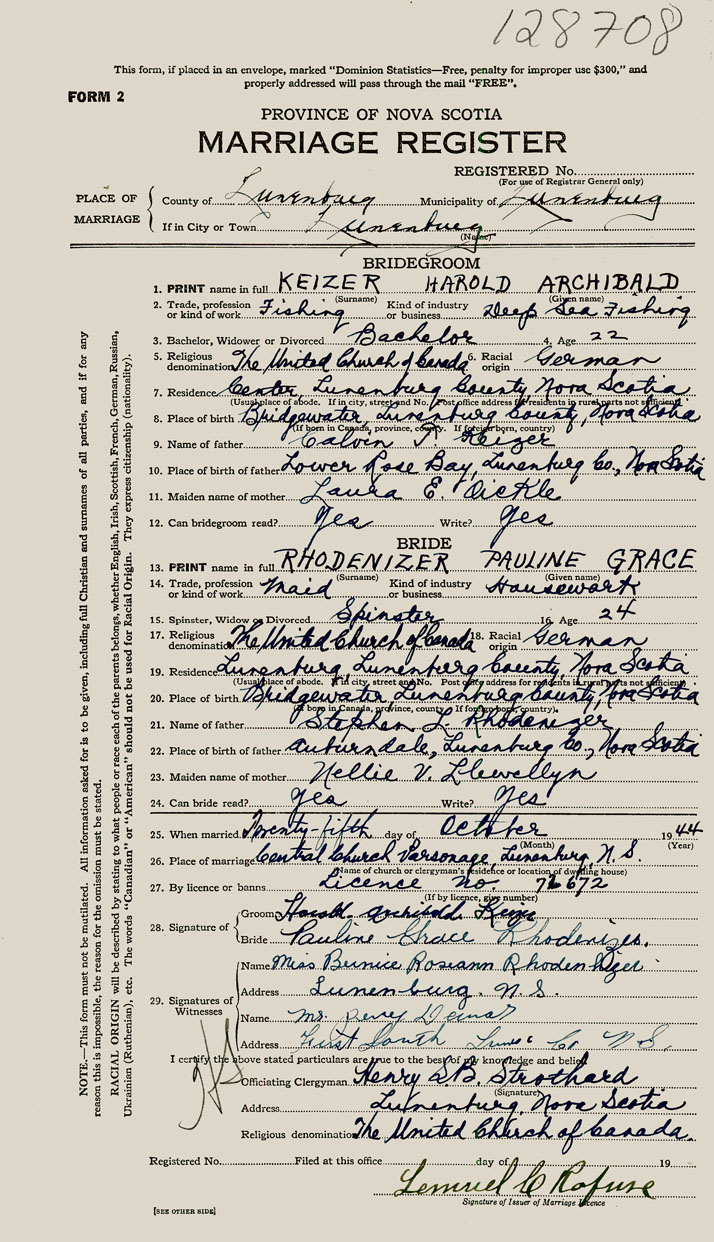 128708
This form, if placed in an envelope, marked "Dominion Statistics—Free, penalty for improper use $300," and
properly addressed will pass through the mail "FREE".
FORM 2
PROVINCE OF NOVA SCOTIA
MARRIAGE REGISTER
REGISTERED No.
(For use of Registrar General only)
PLACE OF MARRIAGE
County of Lunenburg Municipality of Lunenburg
If in City or Town Lunenburg
(Name)
BRIDEGROOM
1. PRINT name in full KEIZER HAROLD ARCHIBALD
(Surname) (Given name)
2. Trade, profession or kind of work Fishing Kind of industry or business Deep Sea Fishing
3. Bachelor, Widower or Divorced Bachelor 4. Age 22
5. Religious denomination The United Church of Canada 6. Racial origin German
7. Residence Center, Lunenburg County Nova Scotia
(Usual place of abode. If in city, street and No. Post office address for residents in rural parts not sufficient)
8. Place of birth Bridgewater, Lunenburg County, Nova Scotia
(If born in Canada, province, county. If foreign born, country)
9. Name of father Calvin T. Keizer
10. Place of birth of father Lower Rose Bay, Lunenburg Co., Nova Scotia
11. Maiden name of mother Laura E. Oickle
12. Can bridegroom read? Yes Write? Yes
BRIDE
13. PRINT name in full RHODENIZER PAULINE GRACE
(Surname) (Given name)
14. Trade, profession or kind of work Maid Kind of industry or business Housework
15. Spinster, Widow or Divorced Spinster 16. Age 24
17. Religious denomination The United Church of Canada 18. Racial origin German
19. Residence Lunenburg, Lunenburg County, Nova Scotia
(Usual place of abode. If in city, street and No. Post office address for residents in rural parts not sufficient)
20. Place of birth Bridgewater, Lunenburg County, Nova Scotia
(If born in Canada, province, county. If foreign born, country)
21. Name of father Stephen L. Rhodenizer
22. Place of birth of father Auburndale, Lunenburg Co., Nova Scotia
23. Maiden name of mother Nellie V. Llewellyn
24. Can bride read? Yes Write? Yes
25. When married Twenty-fifth day of October 1944
(Month) (Year)
26. Place of marriage Central Church Parsonage, Lunenburg, N. S.
(Name of church or clergyman's residence or location of dwelling house)
27. By licence or banns Licence No 72672
(If by licence, give number)
28. Signature of
Groom Harold Archibald Keizer
Bride Pauline Grace Rhodenizer.
29. Signatures of Witnesses
Name Miss Bunice Roseann Rhodenhizer
Address Lunenburg. N. S.
Name Mr. Perry
Address First South Lune Co N. S.
I certify the above stated particulars are true to the best of my knowledge and belief
Officiating Clergyman Henry Strothard
(Signature)
Address Lunenburg, Nova Scotia
Religious denomination The United Church of Canada.
Registered No. Filed at this office day of 19
Lemuel C Rafuse
Signature of Issuer of Marriage Licence
[SEE OTHER SIDE]
NOTE.—This form must not be mutilated. All information asked for is to be given, including full Christian and surnames of all parties, and if for any
reason this is impossible, the reason for the omission must be stated.
RACIAL ORIGIN will be described by stating to what people or race each of the parents belongs, whether English, Irish, Scottish, French, German, Russian,
Ukrainian (Ruthenian), etc. The words "Canadian" or "American" should not be used for Racial Origin. They express citizenship (nationality).